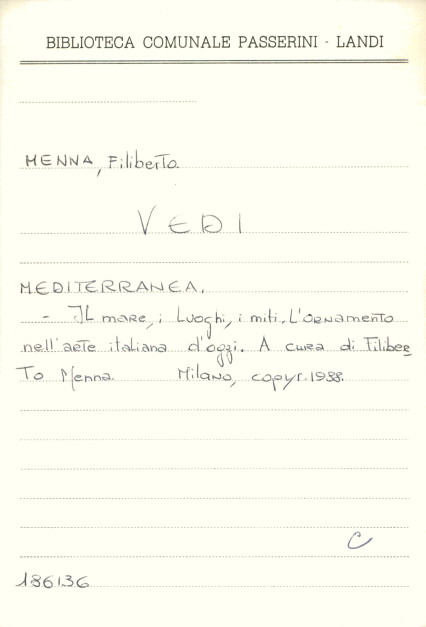 BIBLIOTECA COMUNALE PASSERINI - LANDI
MENNA, Filiberto
VEDI
MEDITERRANEA.
- Il mare, i luoghi, i miti. L'ornamento
nell'arte italiana d'oggi. A cura di Filiber
to Menna. Milano, copyr. 1988.
C
186136